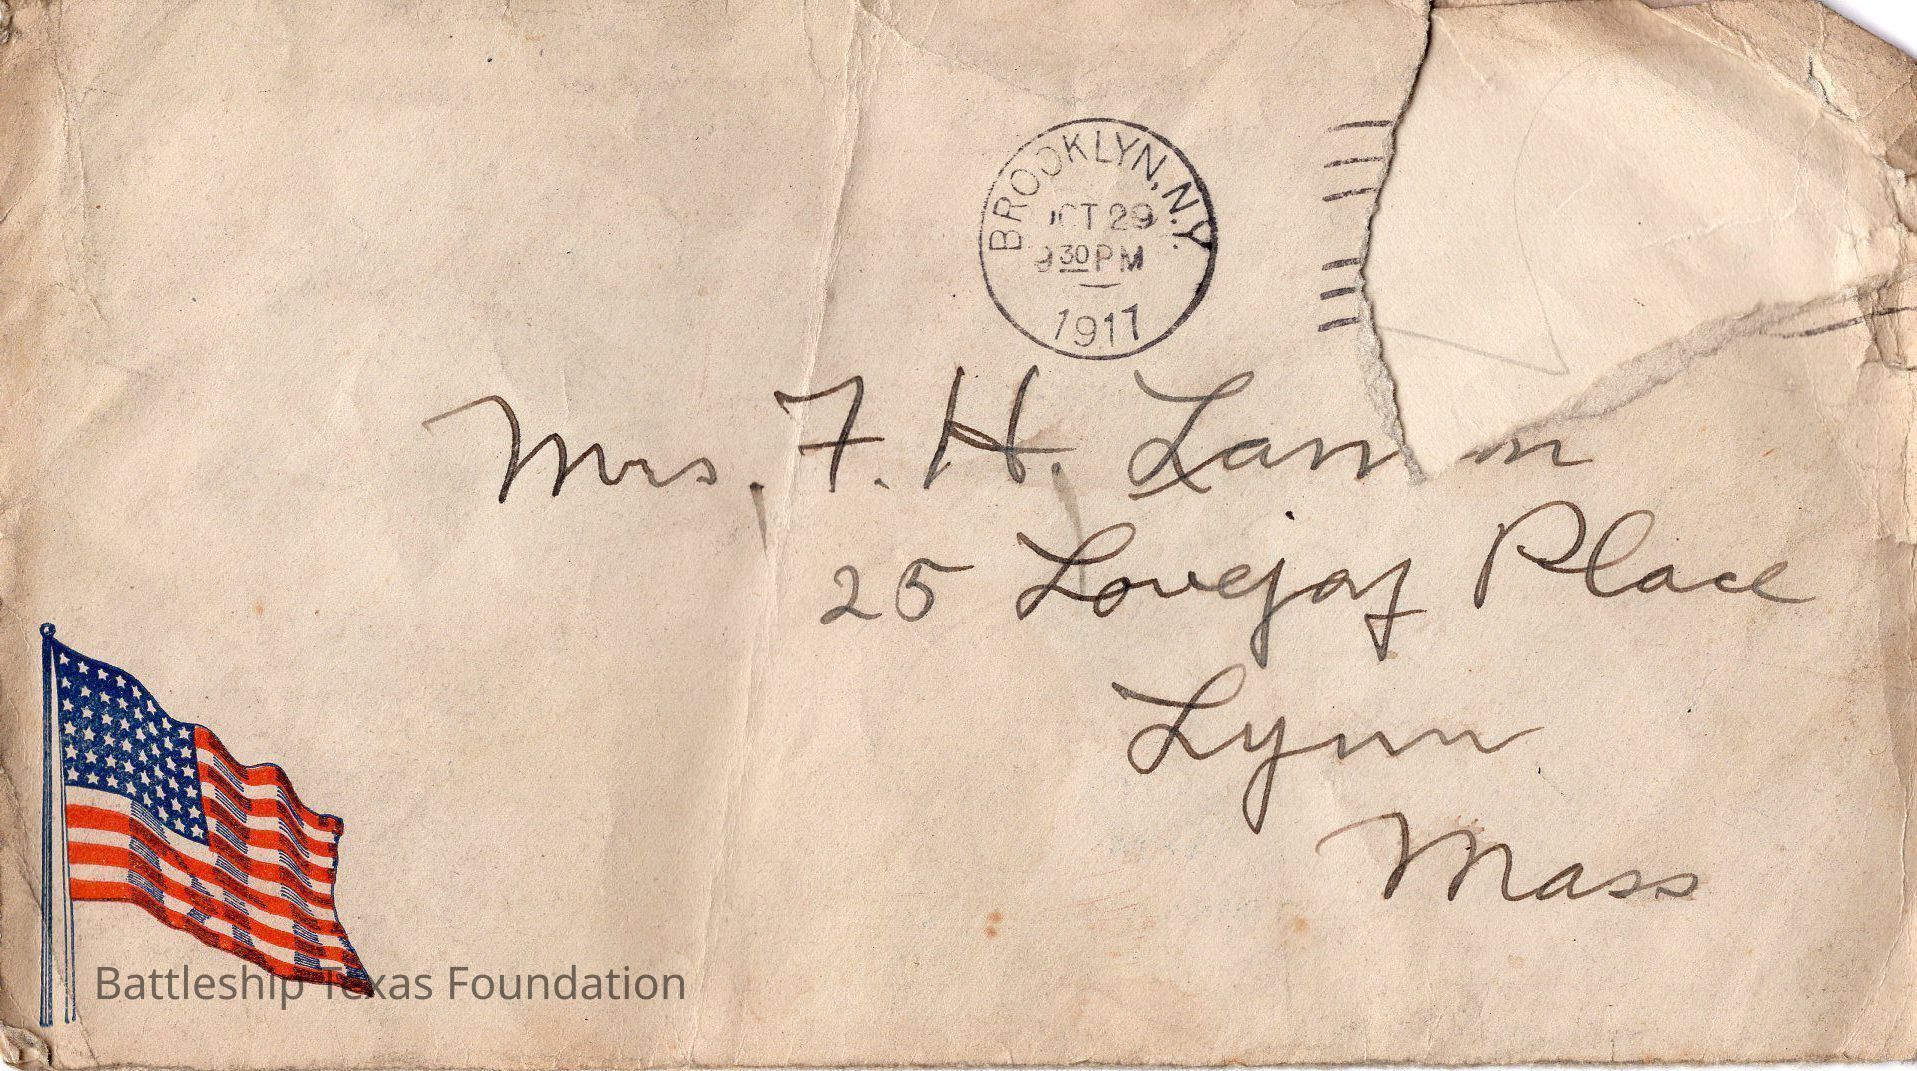 BROOKLYN, N.Y.
OCT 29
9 30 PM
1917
Mrs. F. H.
25 Lovejoy Place
Lynn
Mass
Battleship Texas Foundation